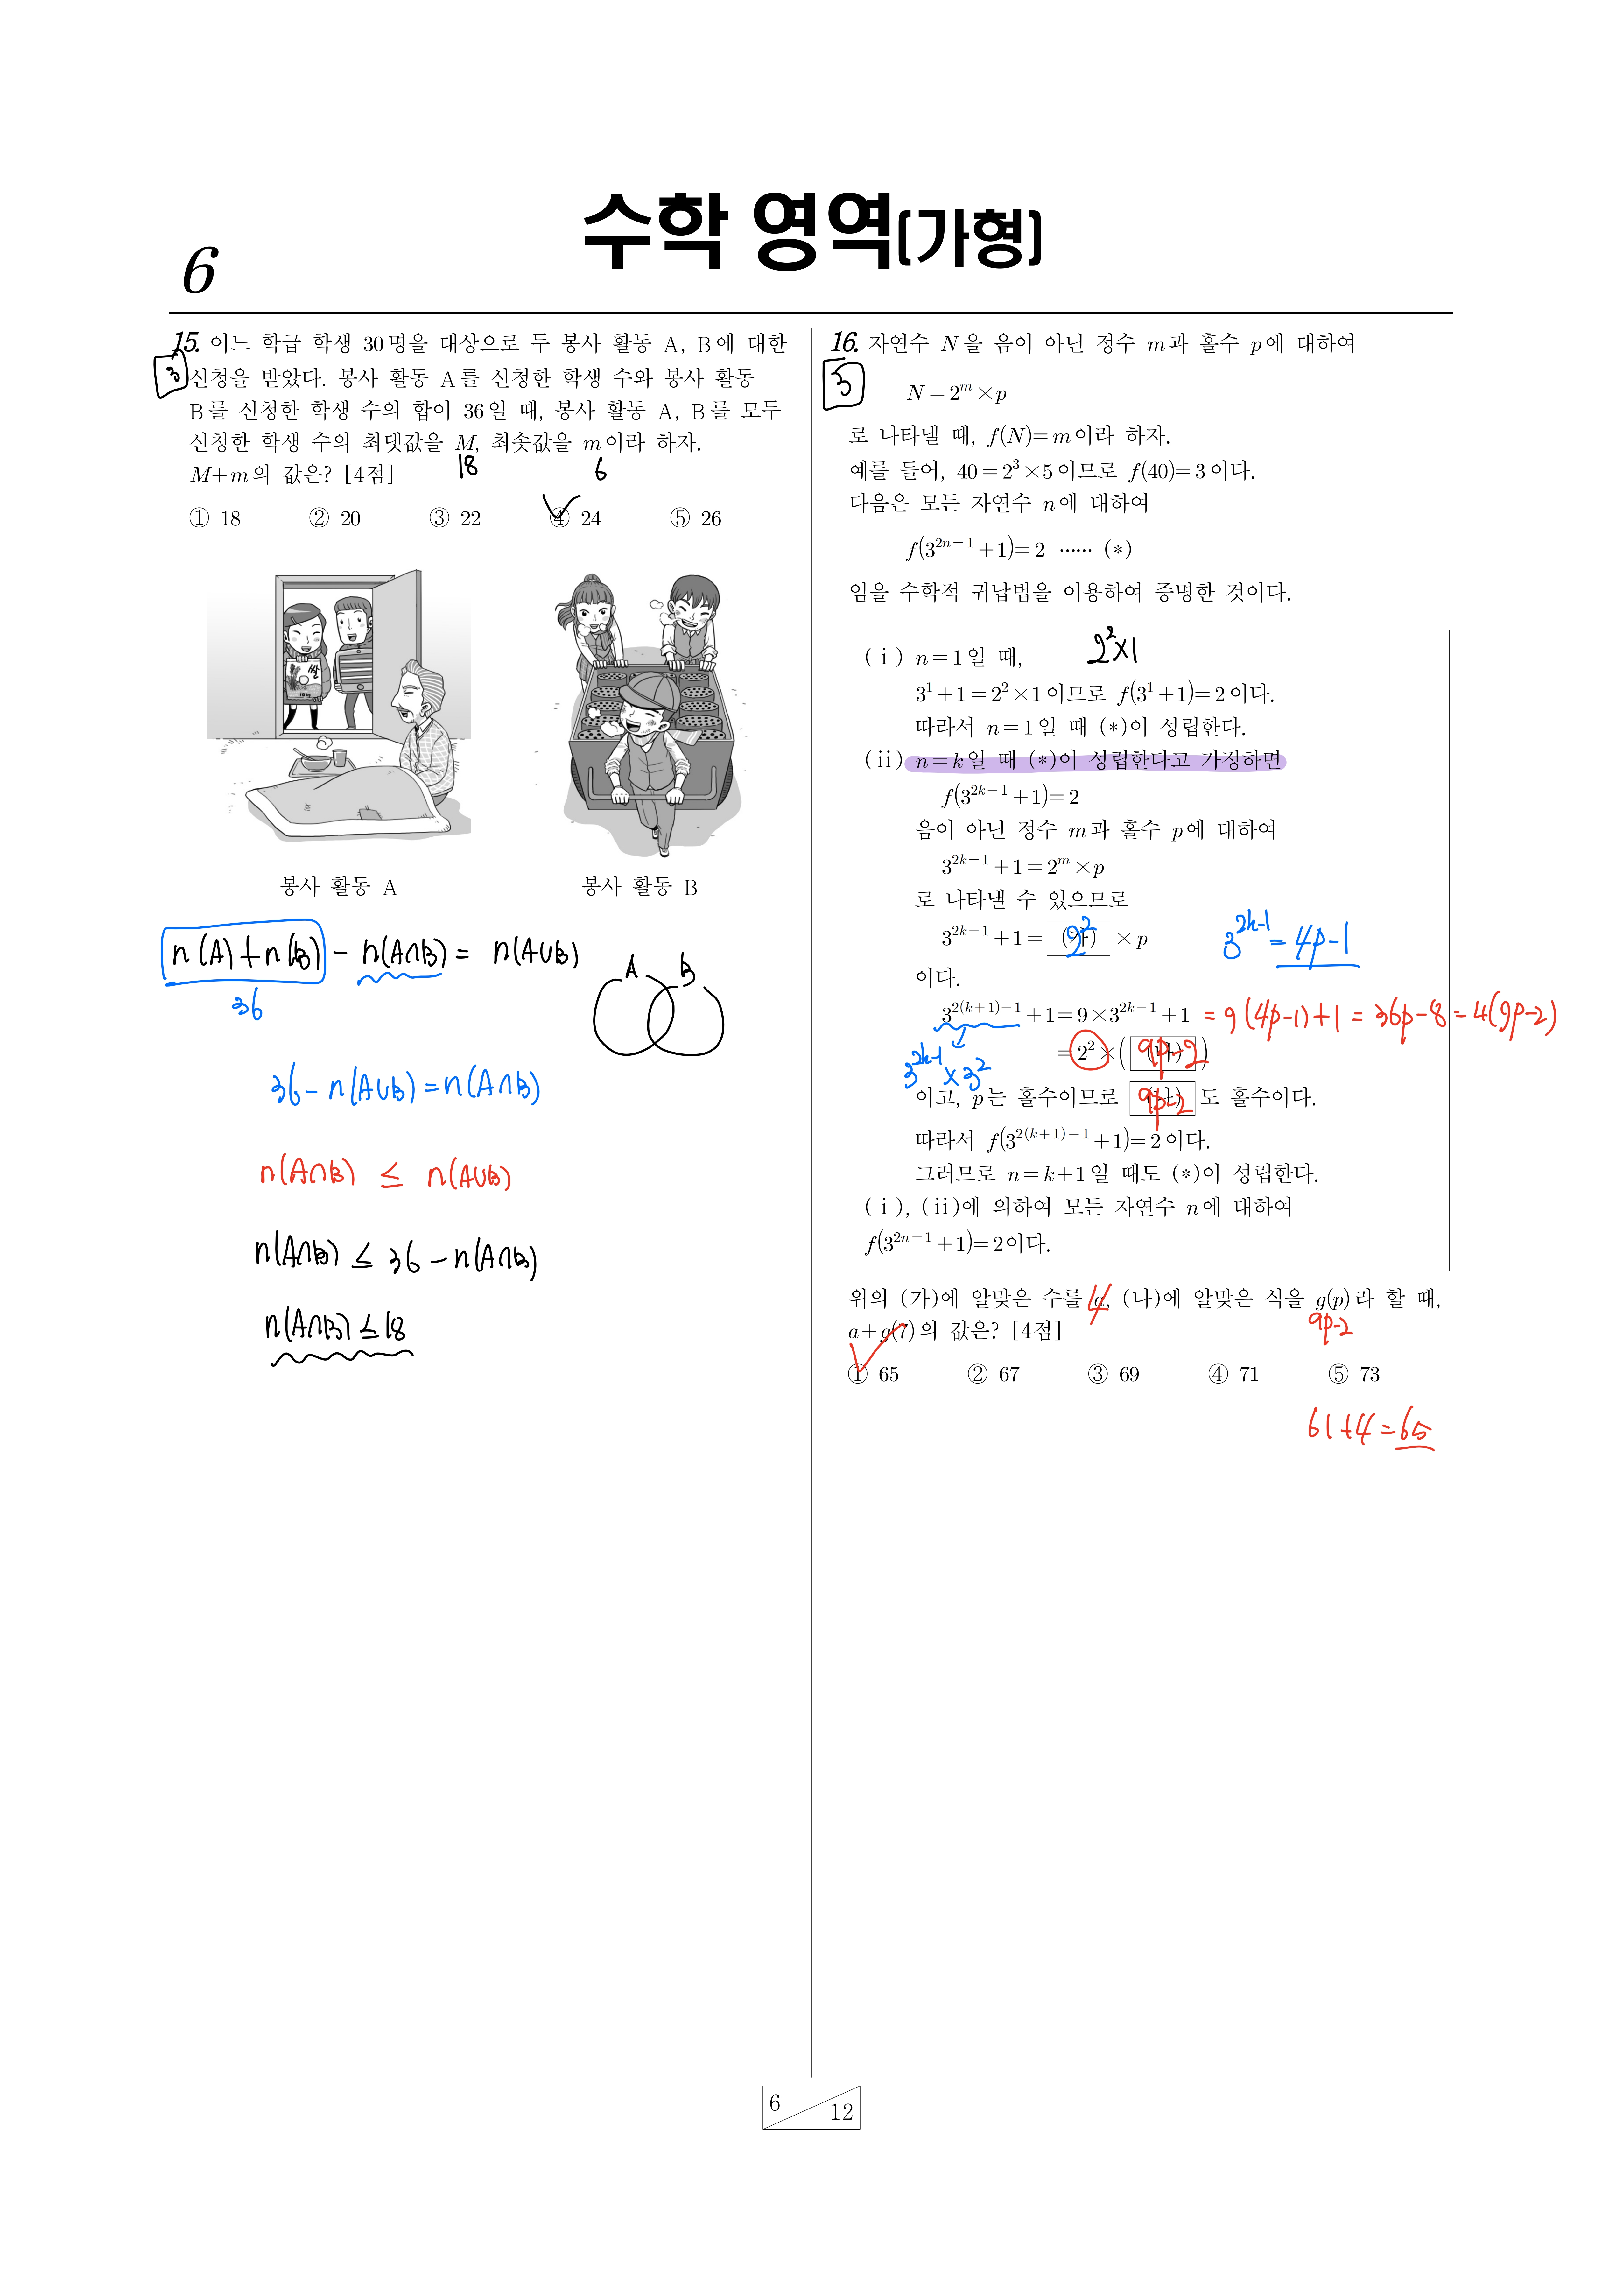 수학 영역(가형)
6
15. 어느 학급 학생 30명을 대상으로 두 봉사 활동 A, B에 대한
3
신청을 받았다. 봉사 활동 A를 신청한 학생 수와 봉사 활동
B를 신청한 학생 수의 합이 36일 때, 봉사 활동 A, B를 모두
신청한 학생 수의 최댓값을 M, 최솟값을 m이라 하자.
M+m의 값은? [4점]
18 6
① 18 ② 20 ③ 22 ④ 24 ⑤ 26
쌀
봉사 활동 A 봉사 활동 B
n(A)+n(B) - n(A∩B) = n(A∪B)
36
A B
36 - n(A∪B) = n(A∩B)
n(A∩B) ≤ n(A∪B)
n(A∩B) ≤ 36 - n(A∩B)
n(A∩B) ≤ 18
16. 자연수 N을 음이 아닌 정수 m과 홀수 p에 대하여
3
N = 2^m × p
로 나타낼 때, f(N) = m이라 하자.
예를 들어, 40 = 2^3 × 5이므로 f(40) = 3이다.
다음은 모든 자연수 n에 대하여
f(3^{2n-1} + 1) = 2 …… (*)
임을 수학적 귀납법을 이용하여 증명한 것이다.
(ⅰ) n = 1일 때,
2^2×1
3^1 + 1 = 2^2 × 1이므로 f(3^1 + 1) = 2이다.
따라서 n = 1일 때 (*)이 성립한다.
(ⅱ) n = k일 때 (*)이 성립한다고 가정하면
f(3^{2k-1} + 1) = 2
음이 아닌 정수 m과 홀수 p에 대하여
3^{2k-1} + 1 = 2^m × p
로 나타낼 수 있으므로
3^{2k-1} + 1 = (가) × p
2^2
3^{2k-1} = 4p-1
이다.
3^{2(k+1)-1} + 1 = 9 × 3^{2k-1} + 1
= 9(4p-1)+1 = 36p-8 = 4(9p-2)
= 2^2 × ( (나) )
9p-2
3^{2k-1} × 3^2
이고, p는 홀수이므로 (나) 도 홀수이다.
9p-2
따라서 f(3^{2(k+1)-1} + 1) = 2이다.
그러므로 n = k+1일 때도 (*)이 성립한다.
(ⅰ), (ⅱ)에 의하여 모든 자연수 n에 대하여
f(3^{2n-1} + 1) = 2이다.
위의 (가)에 알맞은 수를 a, (나)에 알맞은 식을 g(p)라 할 때,
4 9p-2
a + g(7)의 값은? [4점]
① 65 ② 67 ③ 69 ④ 71 ⑤ 73
61+4=65
6 12